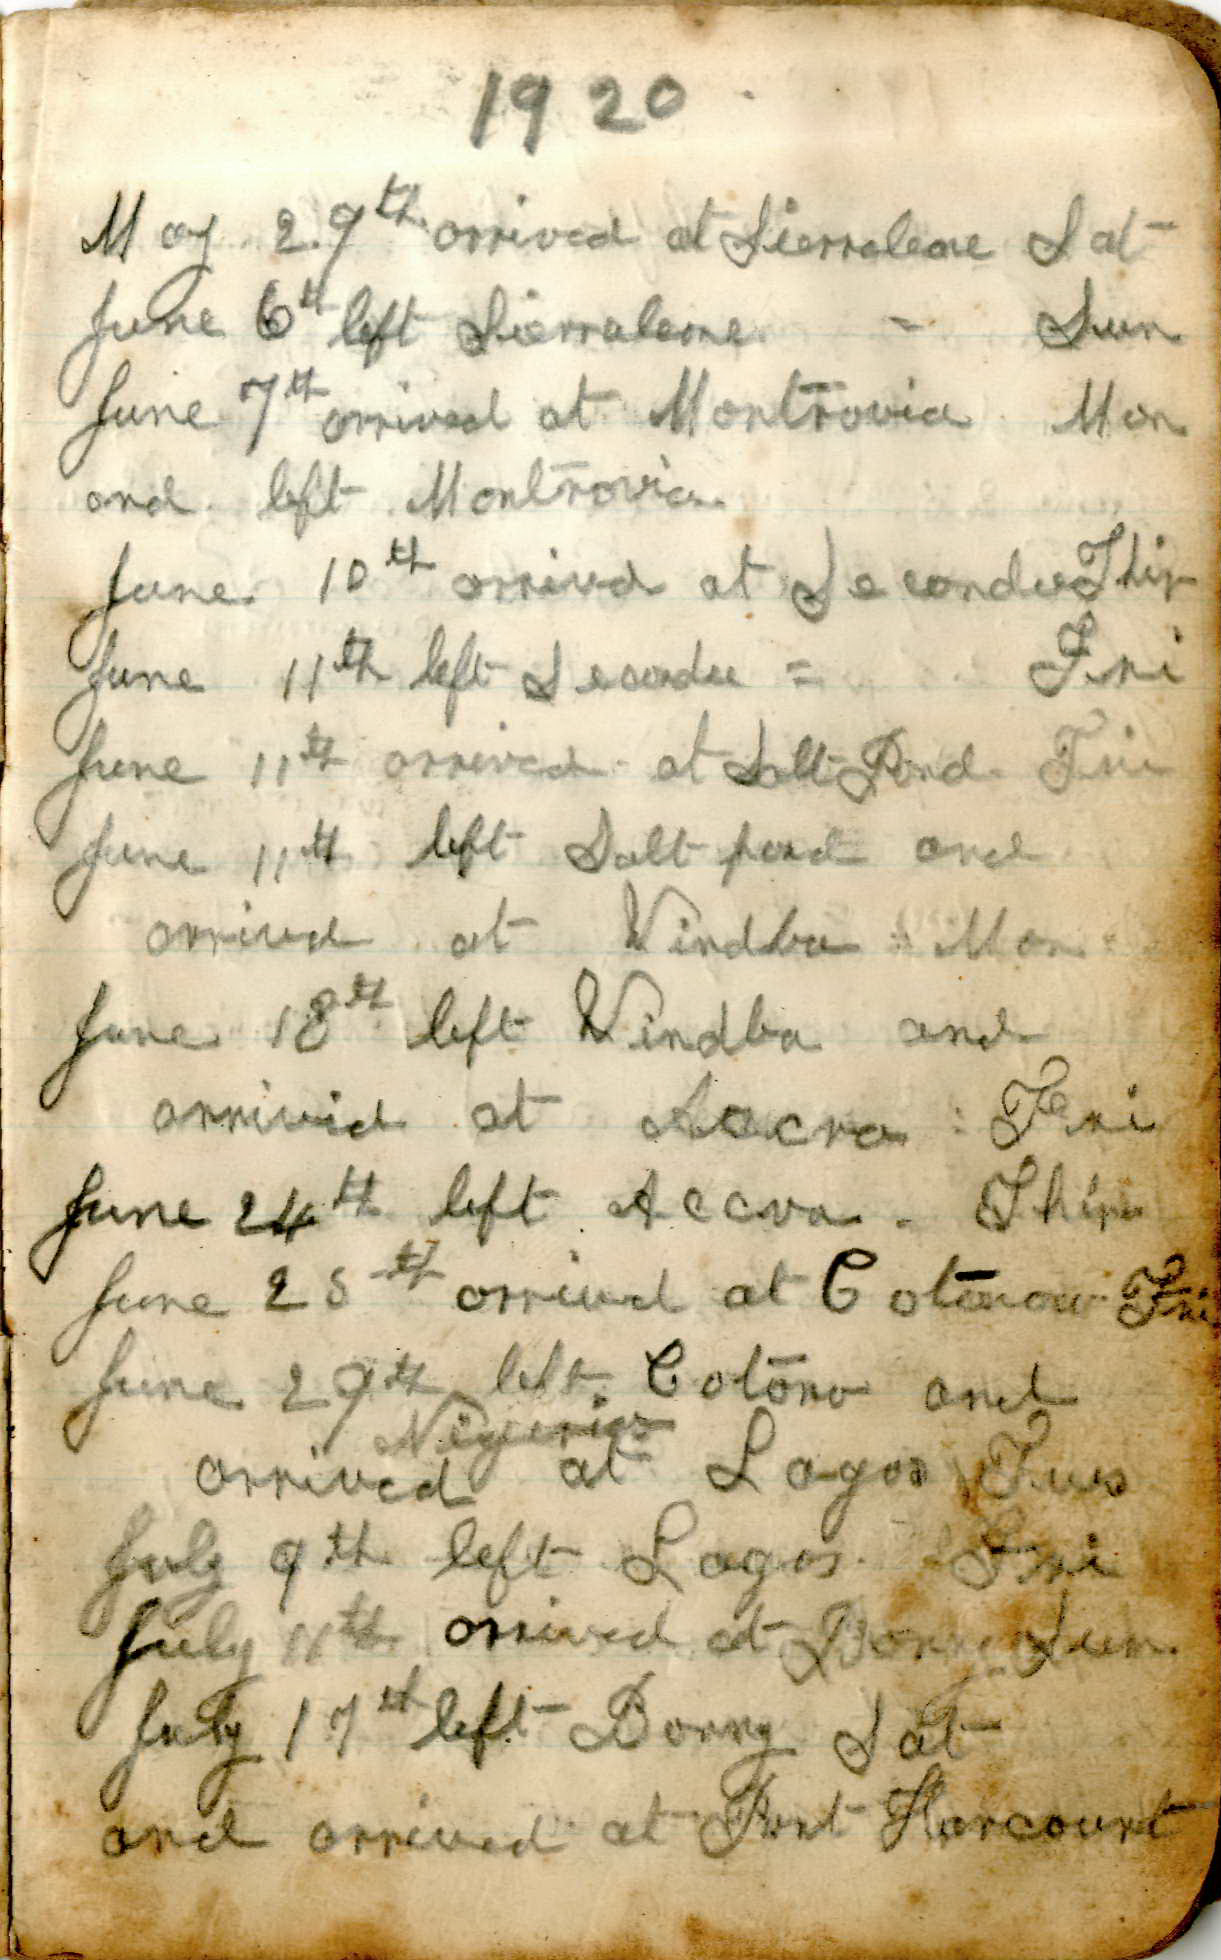 1920
May 29th arrived at Sierraleone Sat
June 6th left Sierraleone - Sun
June 7th arrived at Montrovia Mon
and left Montrovia
June 10th arrived at Secondee Thir
June 11th left Secondee = Fri
June 11th arrived at Salt Pond Fri
June 11th left Salt pond and
arrived at Vindba Mon
June 18th left Vindba and
arrivid at Accra : Fri
June 24th left Accra. Thir
June 25th arrived at Cotonow Fri
June 29th left Cotono and
Nigeria
arrived at Lagos Tues
July 9th left Lagos. Fri
July 11th arrived at Bonny Sun
July 17th left Bonny Sat
and arrived at Port Harcourt